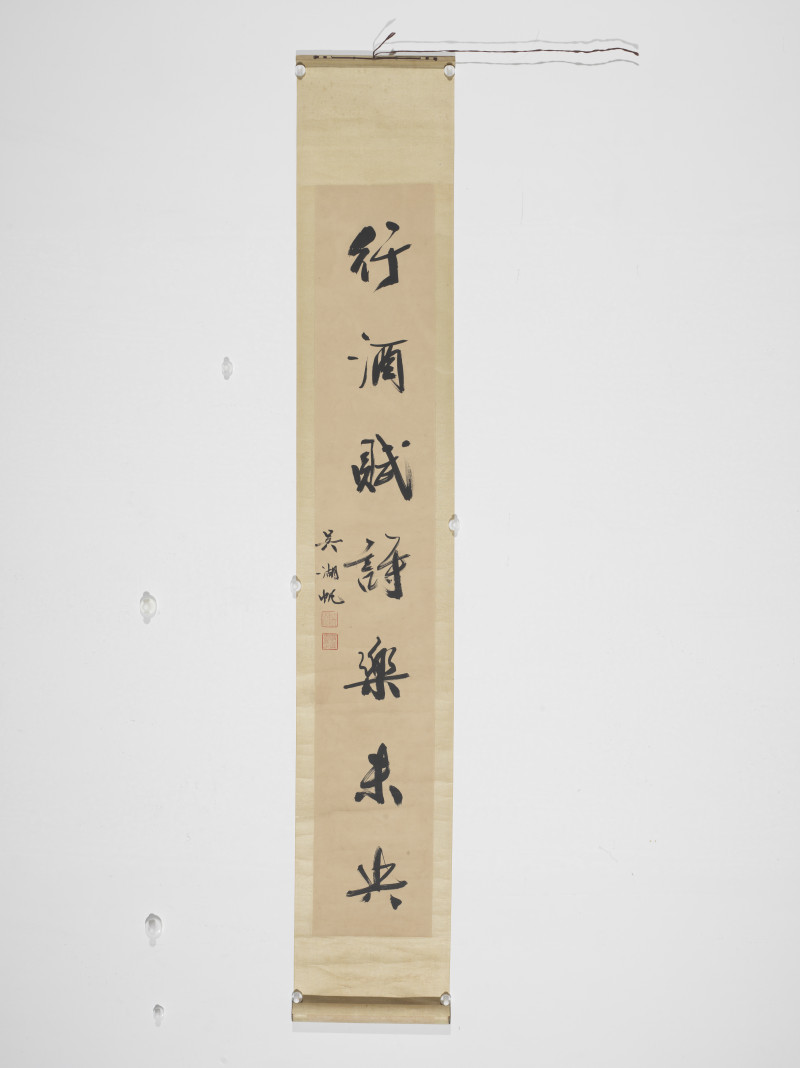 行酒賦詩樂未央
吳湖帆